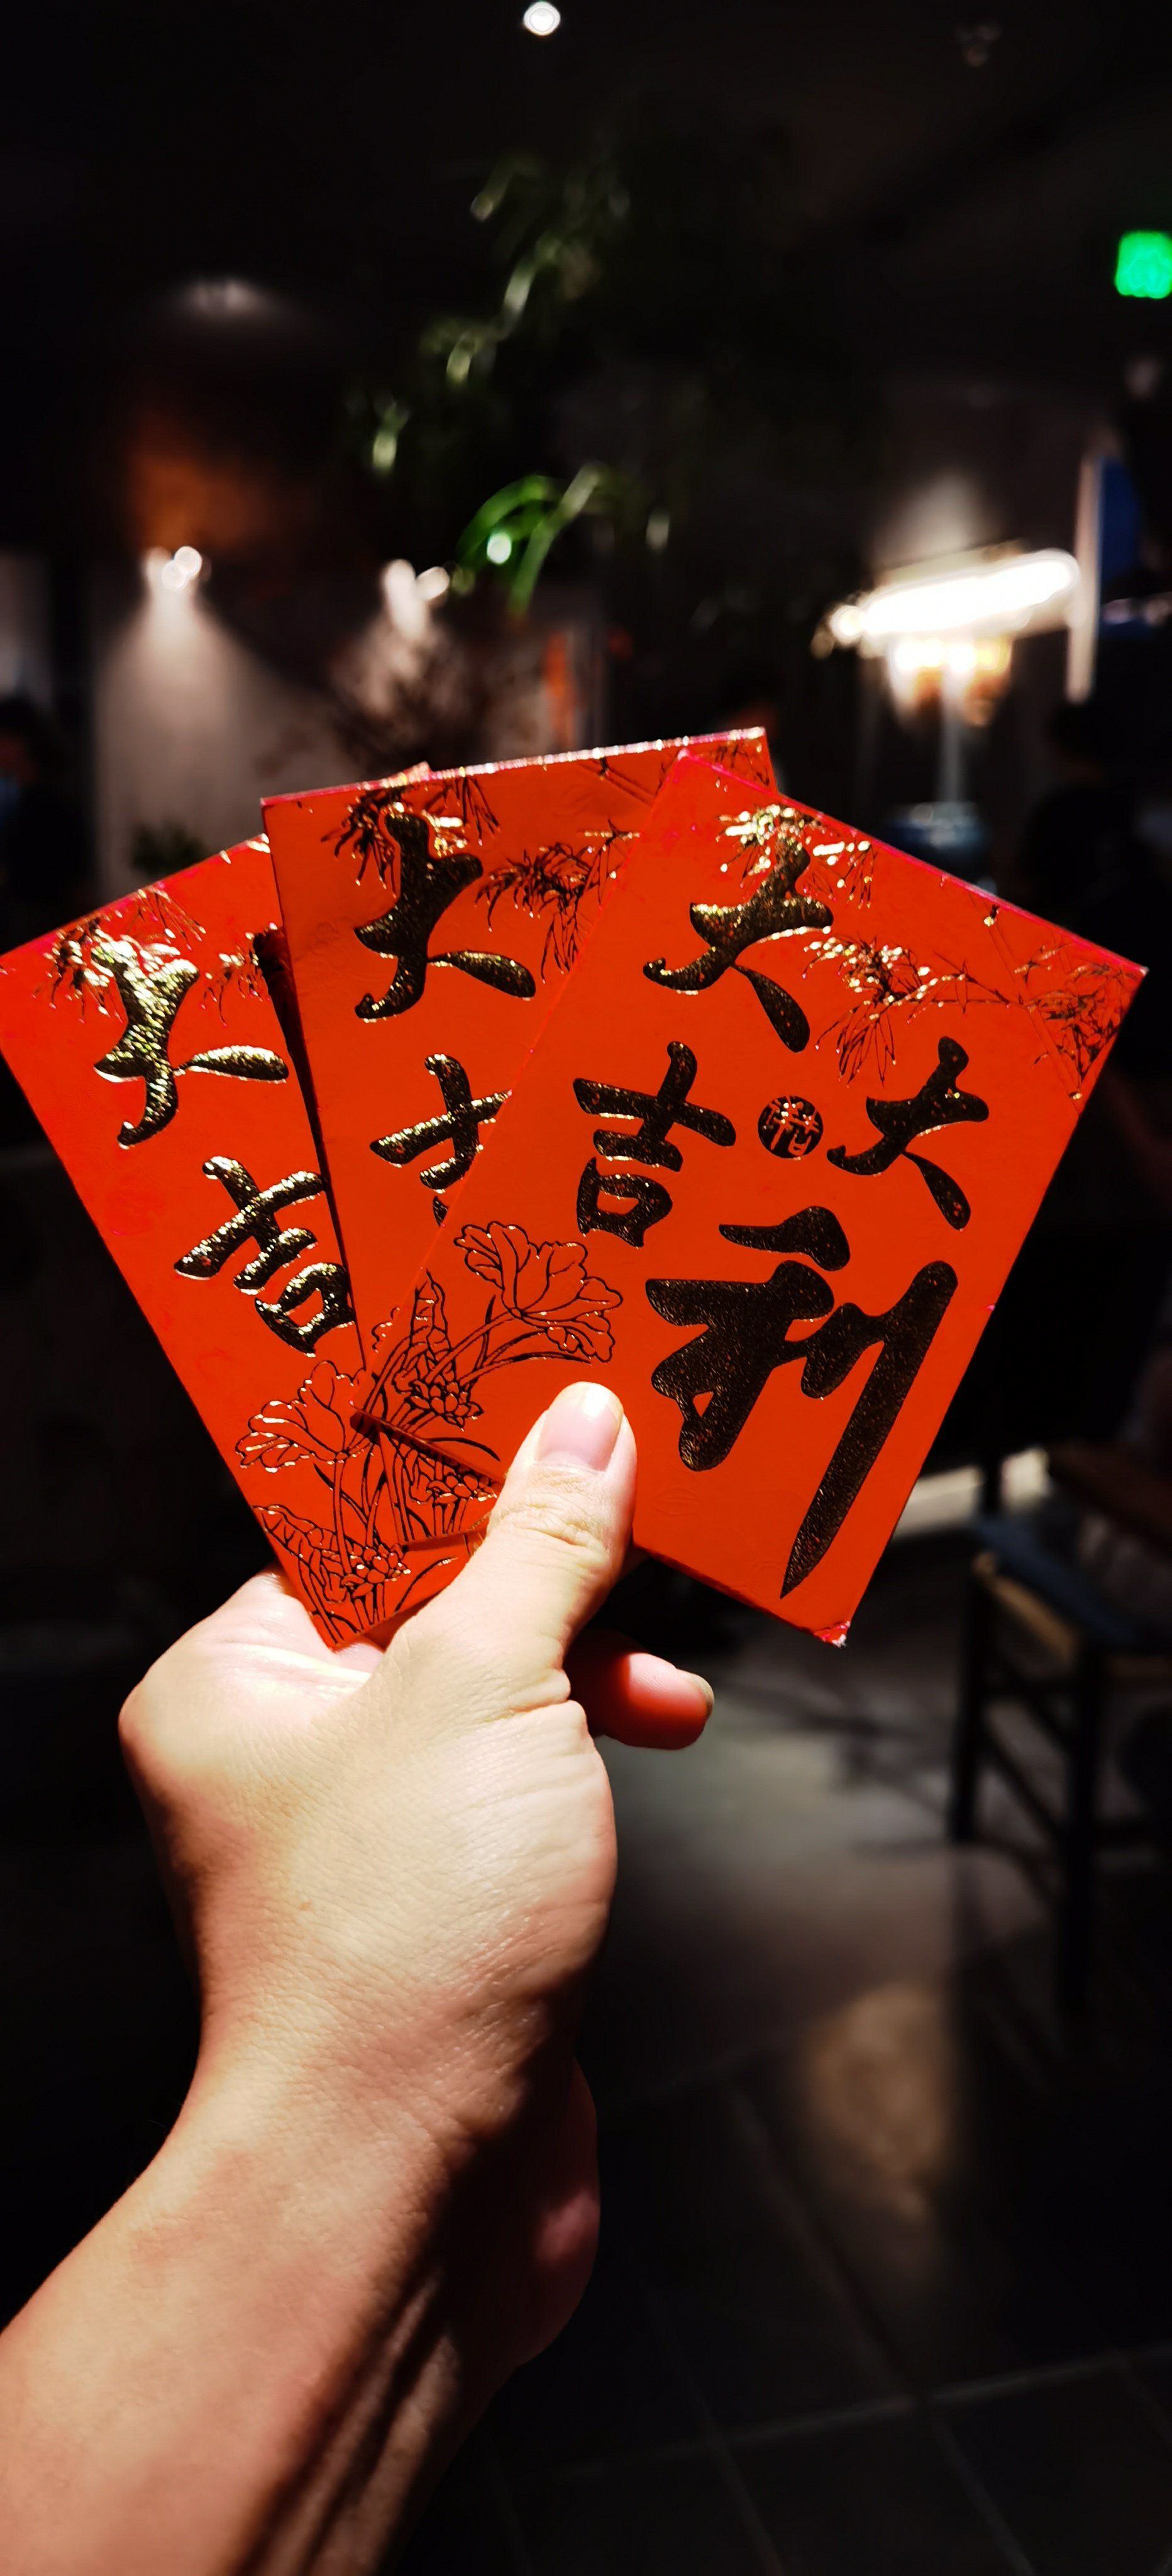 大吉
大吉
大吉
大利